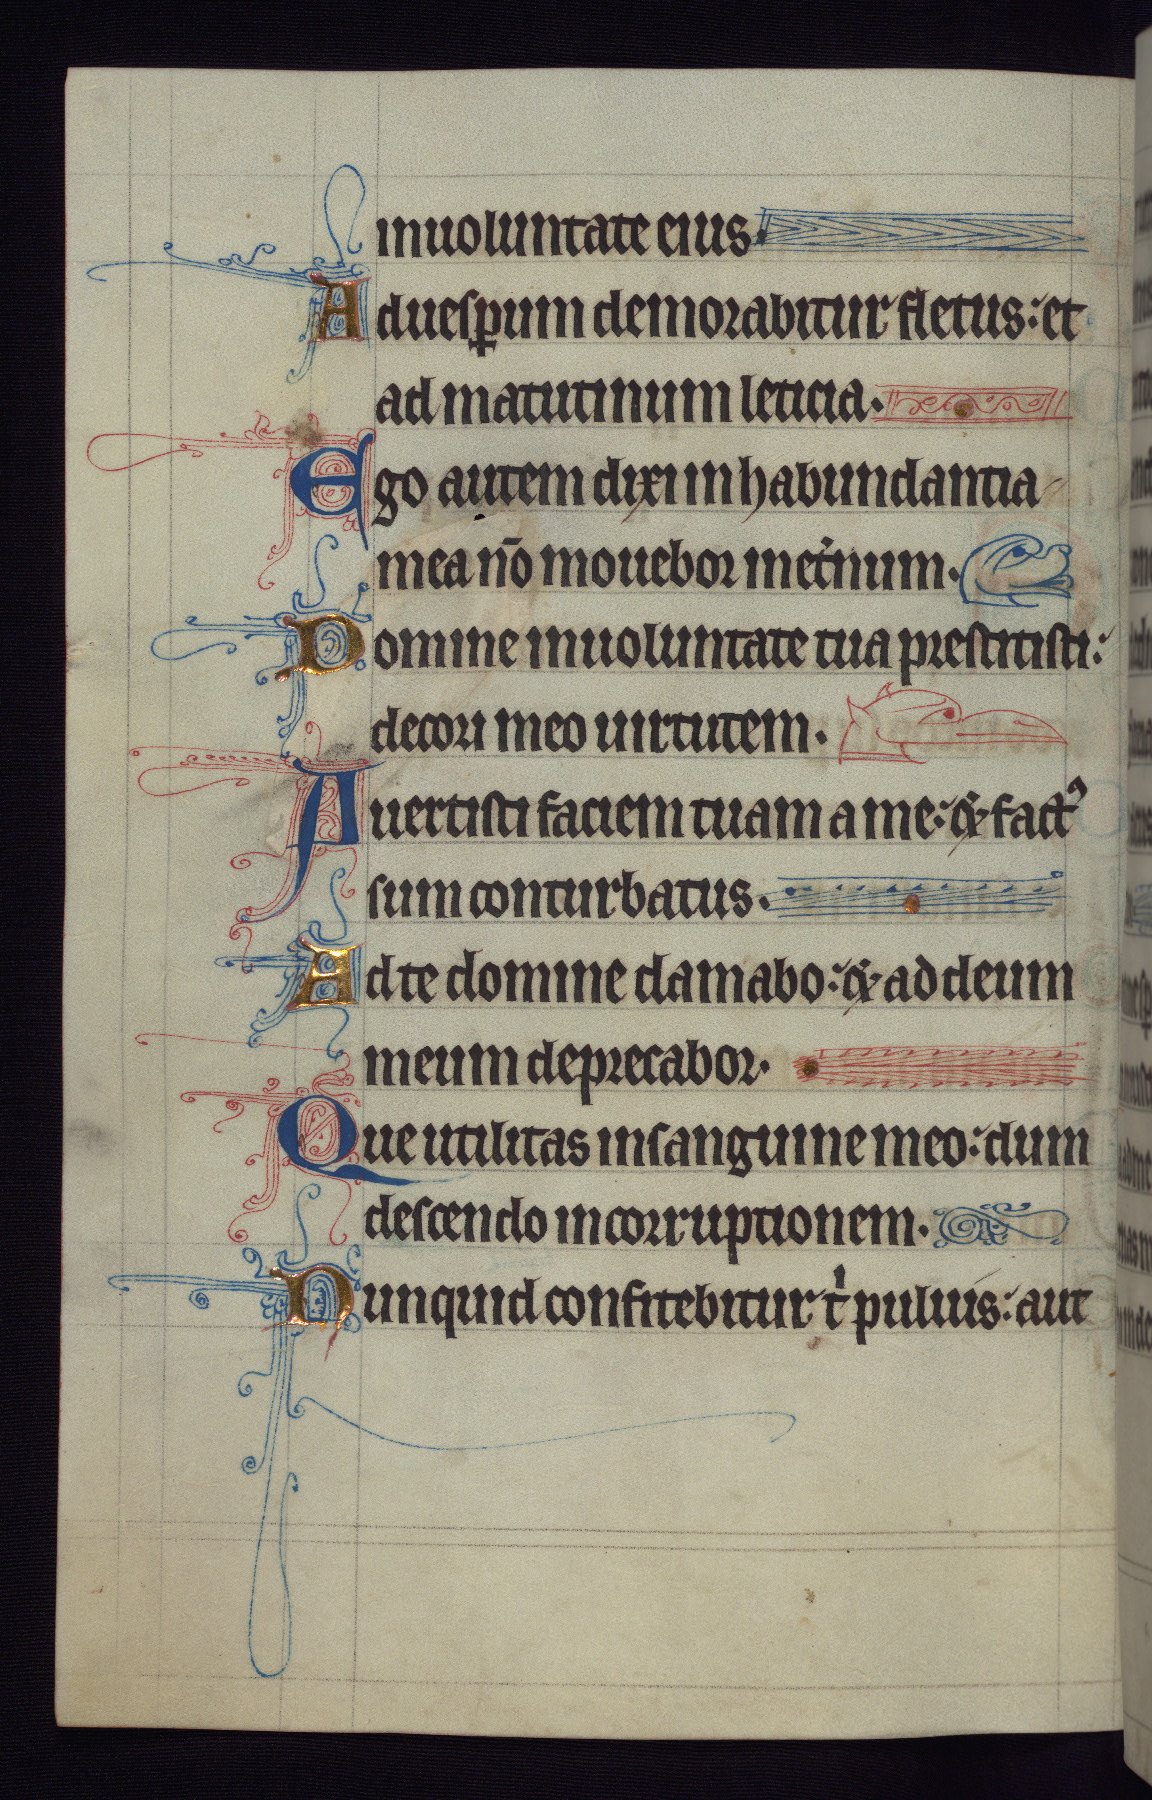 inuoluntate eius.
Aduesꝑum demorabitur fletus: et
ad matutinum leticia.
Ego autem dixi in habundantia
mea nō mouebor inet̉num.
Domine inuoluntate tua prestitisti:
decori meo uirtutem.
Auertisti faciem tuam a me: ⁊ factꝰ
sum conturbatus.
Ad te domine clamabo: ⁊ ad deum
meum deprecabor.
Que utilitas in sanguine meo: dum
descendo in corruptionem.
Nunquid confitebitur tⁱ puluis: aut